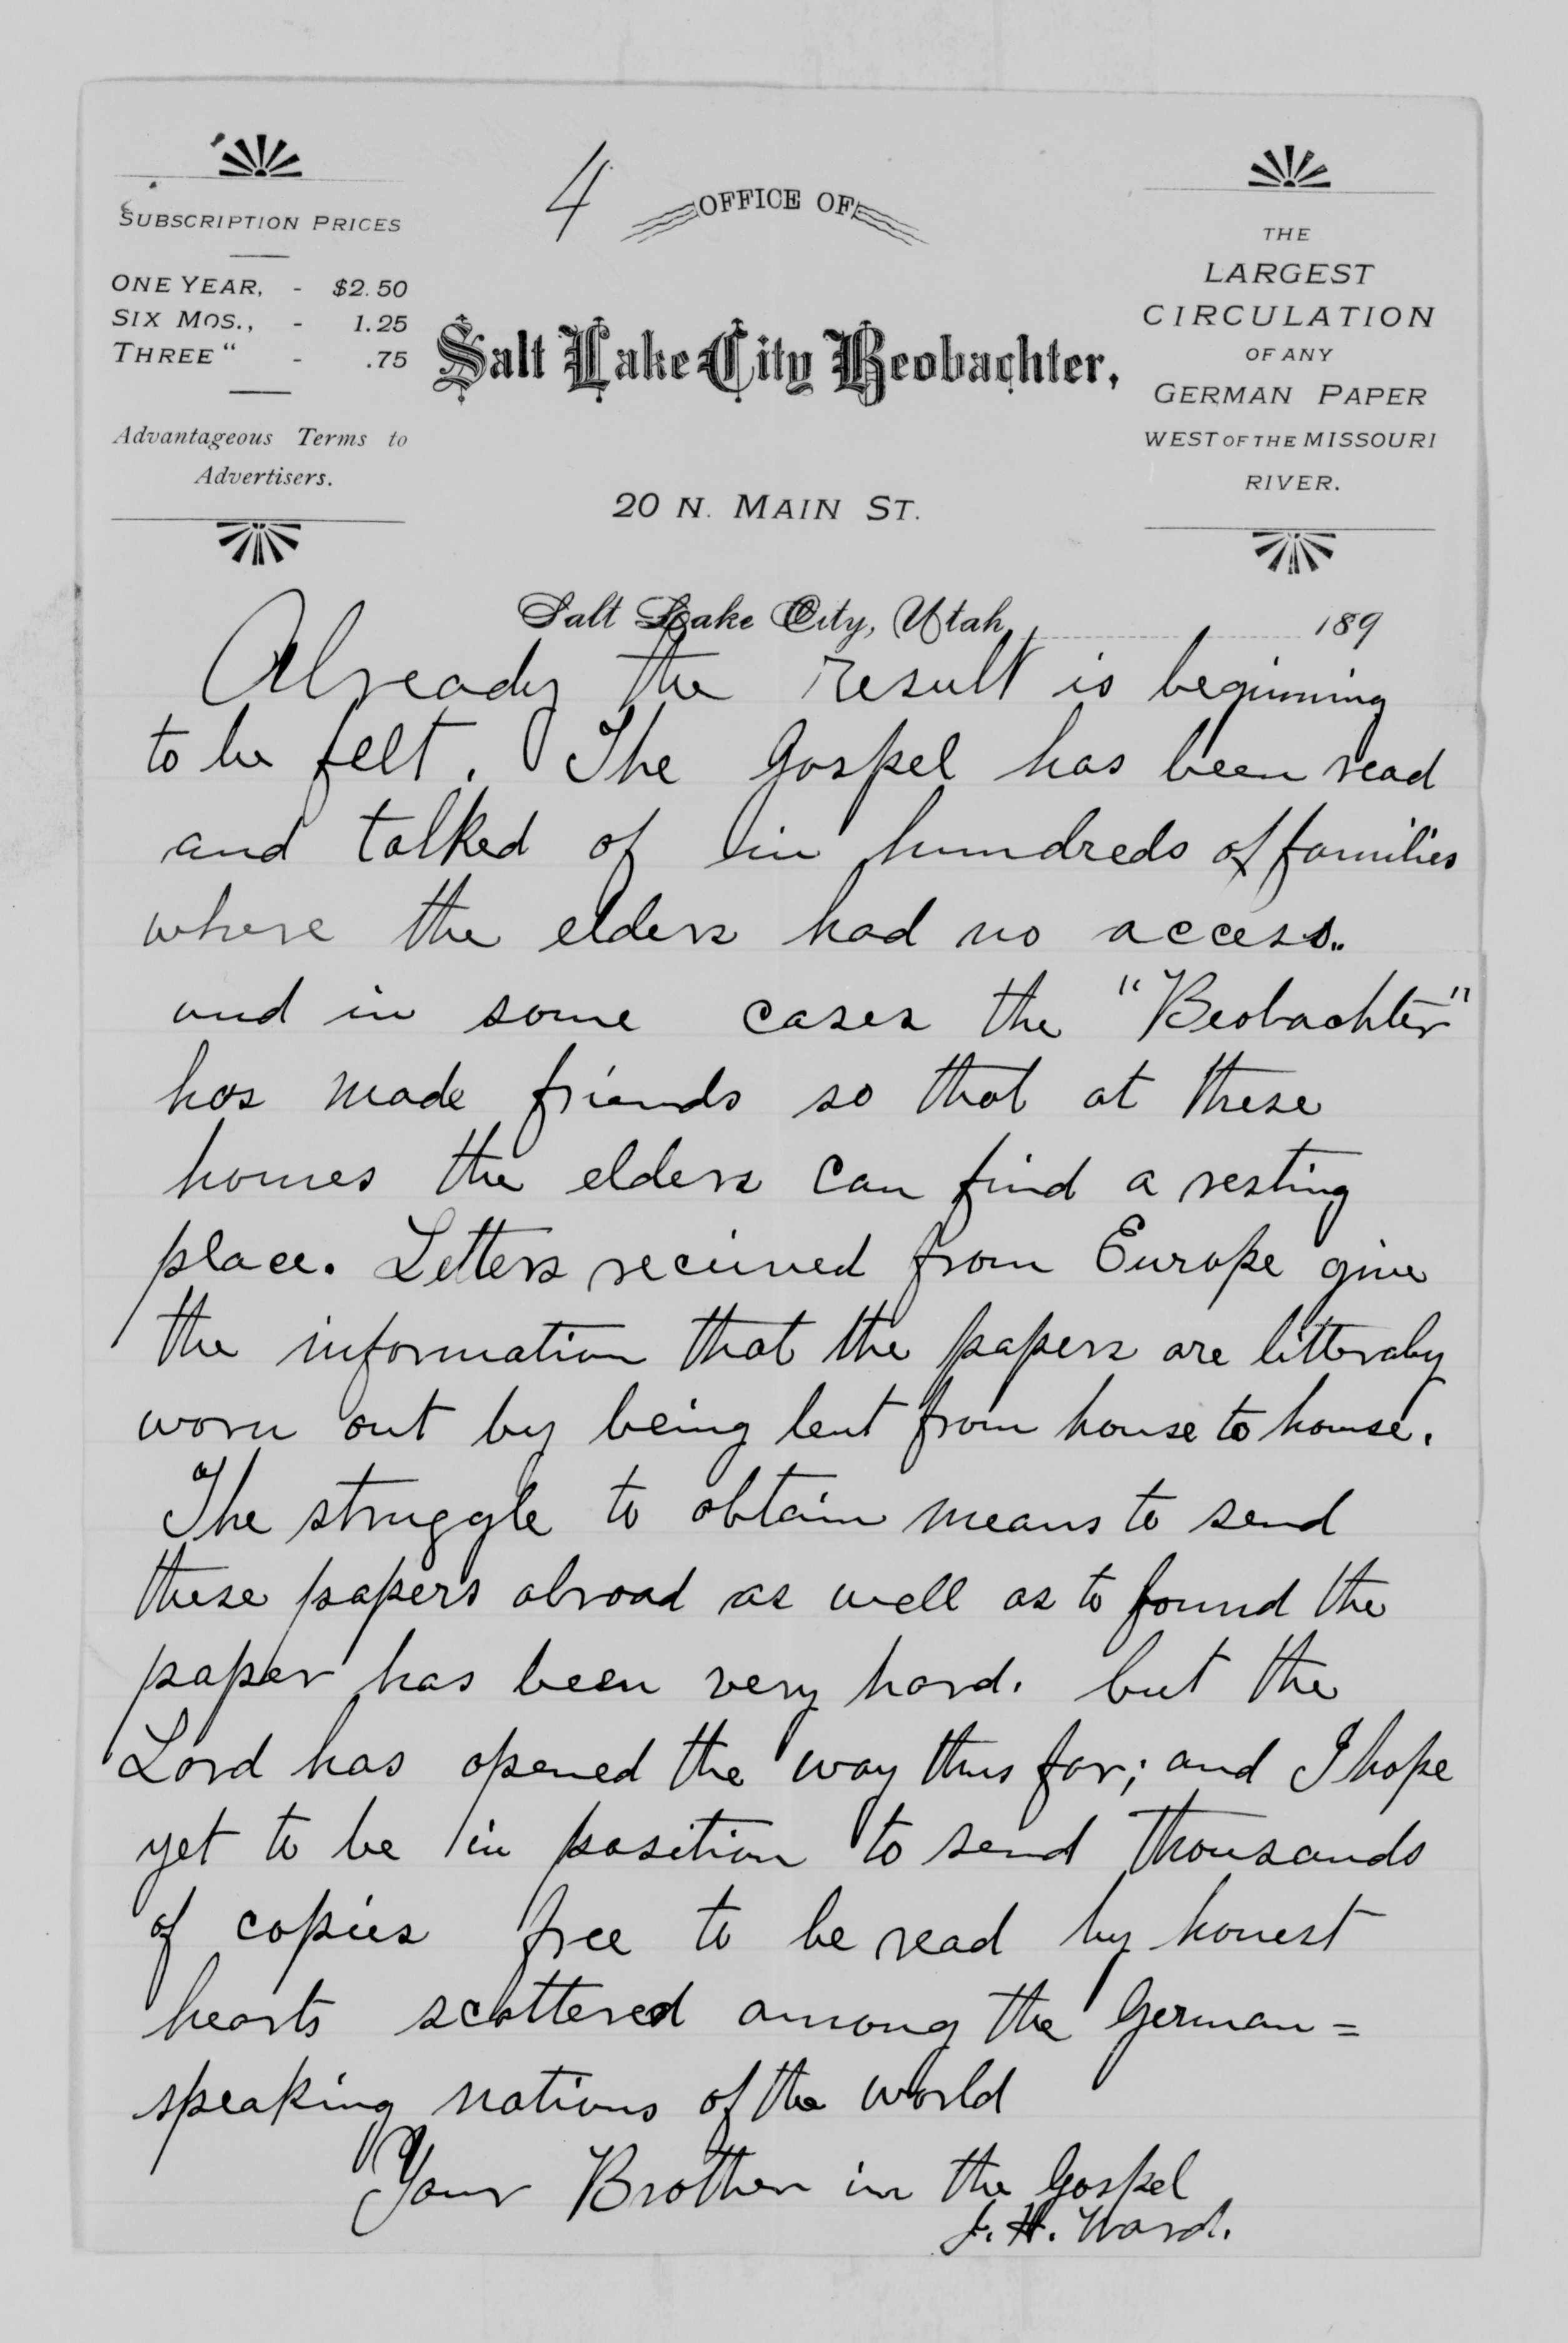 4
OFFICE OF
SUBSCRIPTION PRICES
ONE YEAR, - $2.50
SIX MOS., - 1.25
THREE " - .75
Advantageous Terms to
Advertisers.
Salt Lake City Beobachter,
20 N. MAIN ST.
THE
LARGEST
CIRCULATION
OF ANY
GERMAN PAPER
WEST OF THE MISSOURI
RIVER.
Salt Lake City, Utah, 189
Already the result is beginning
to be felt. The Gospel has been read
and talked of in hundreds of families
where the elders had no access..
and in some cases the "Beobachter"
has made friends so that at these
homes the elders can find a resting
place. Letters recieved from Europe give
the information that the papers are litteraly
worn out by being lent from house to house.
The struggle to obtain means to send
these papers abroad as well as to found the
paper has been very hard. but the
Lord has opened the way thus far; and I hope
yet to be in position to send thousands
of copies free to be read by honest
hearts scattered among the German=
speaking nations of the world
Your Brother in the Gospel
J. H. Ward.